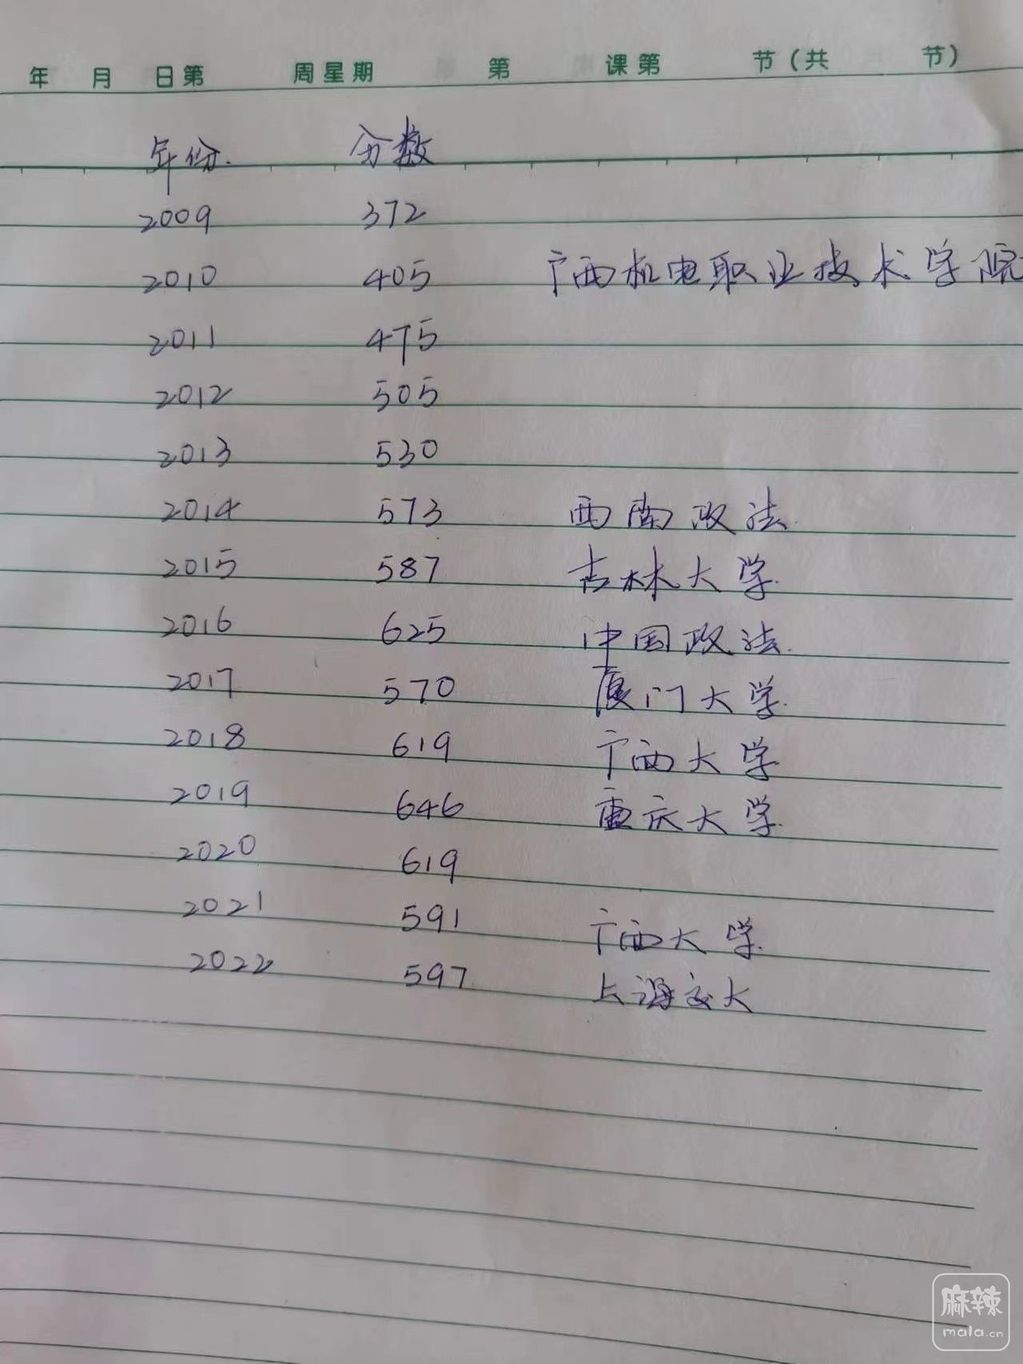 年 月 日第 周星期 第 课第 节(共 节)
年份. 分数
2009 372
2010 405 广西机电职业技术学院
2011 475
2012 505
2013 530
2014 573 西南政法.
2015 587 吉林大学.
2016 625 中国政法.
2017 570 厦门大学.
2018 619 广西大学
2019 646 重庆大学.
2020 619
2021 591 广西大学.
2022 597 上海交大
麻辣
mala.cn